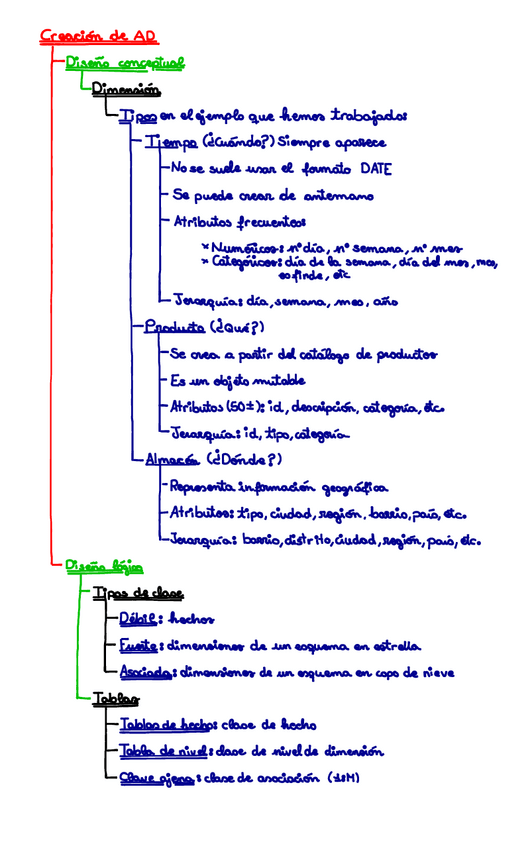 Creación de AD
Diseño conceptual
Dimensión
Tipos en el ejemplo que hemos trabajado:
Tiempo (¿Cuándo?) Siempre aparece
No se suele usar el formato DATE
Se puede crear de antemano
Atributos frecuentes:
× Numéricos: nº día, nº semana, nº mes
× Categóricos: día de la semana, día del mes, mes,
es finde, etc
Jerarquía: día, semana, mes, año
Producto (¿Qué?)
Se crea a partir del catálogo de productos
Es un objeto mutable
Atributos (50±): id, descripción, categoría, etc.
Jerarquía: id, tipo, categoría
Almacén (¿Dónde?)
Representa información geográfica
Atributos: tipo, ciudad, región, barrio, país, etc.
Jerarquía: barrio, distrito, ciudad, región, país, etc.
Diseño lógico
Tipos de clase
Débil: hechos
Fuerte: dimensiones de un esquema en estrella
Asociada: dimensiones de un esquema en copo de nieve
Tablas
Tablas de hecho: clase de hecho
Tabla de nivel: clase de nivel de dimensión
Clave ajena: clase de asociación (1:M)